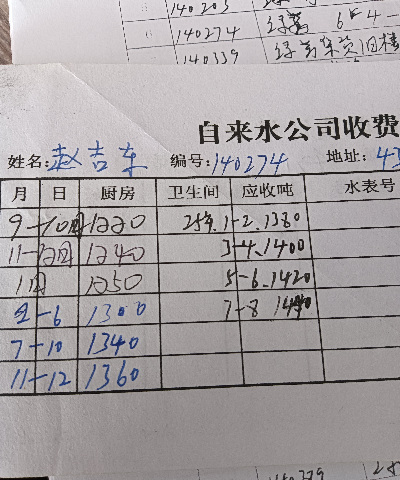 140203
6 140274 绿苑 6-4-
140339
自来水公司收费
姓名:赵吉车 编号:140274 地址:43
月 日 厨房 卫生间 应收吨 水表号
9-10月 1220 25年.1-2.1380
11-12月 1240 3-4.1400
1月 1250 5-6.1420
2-6 1300 7-8 1440
7-10 1340
11-12 1360